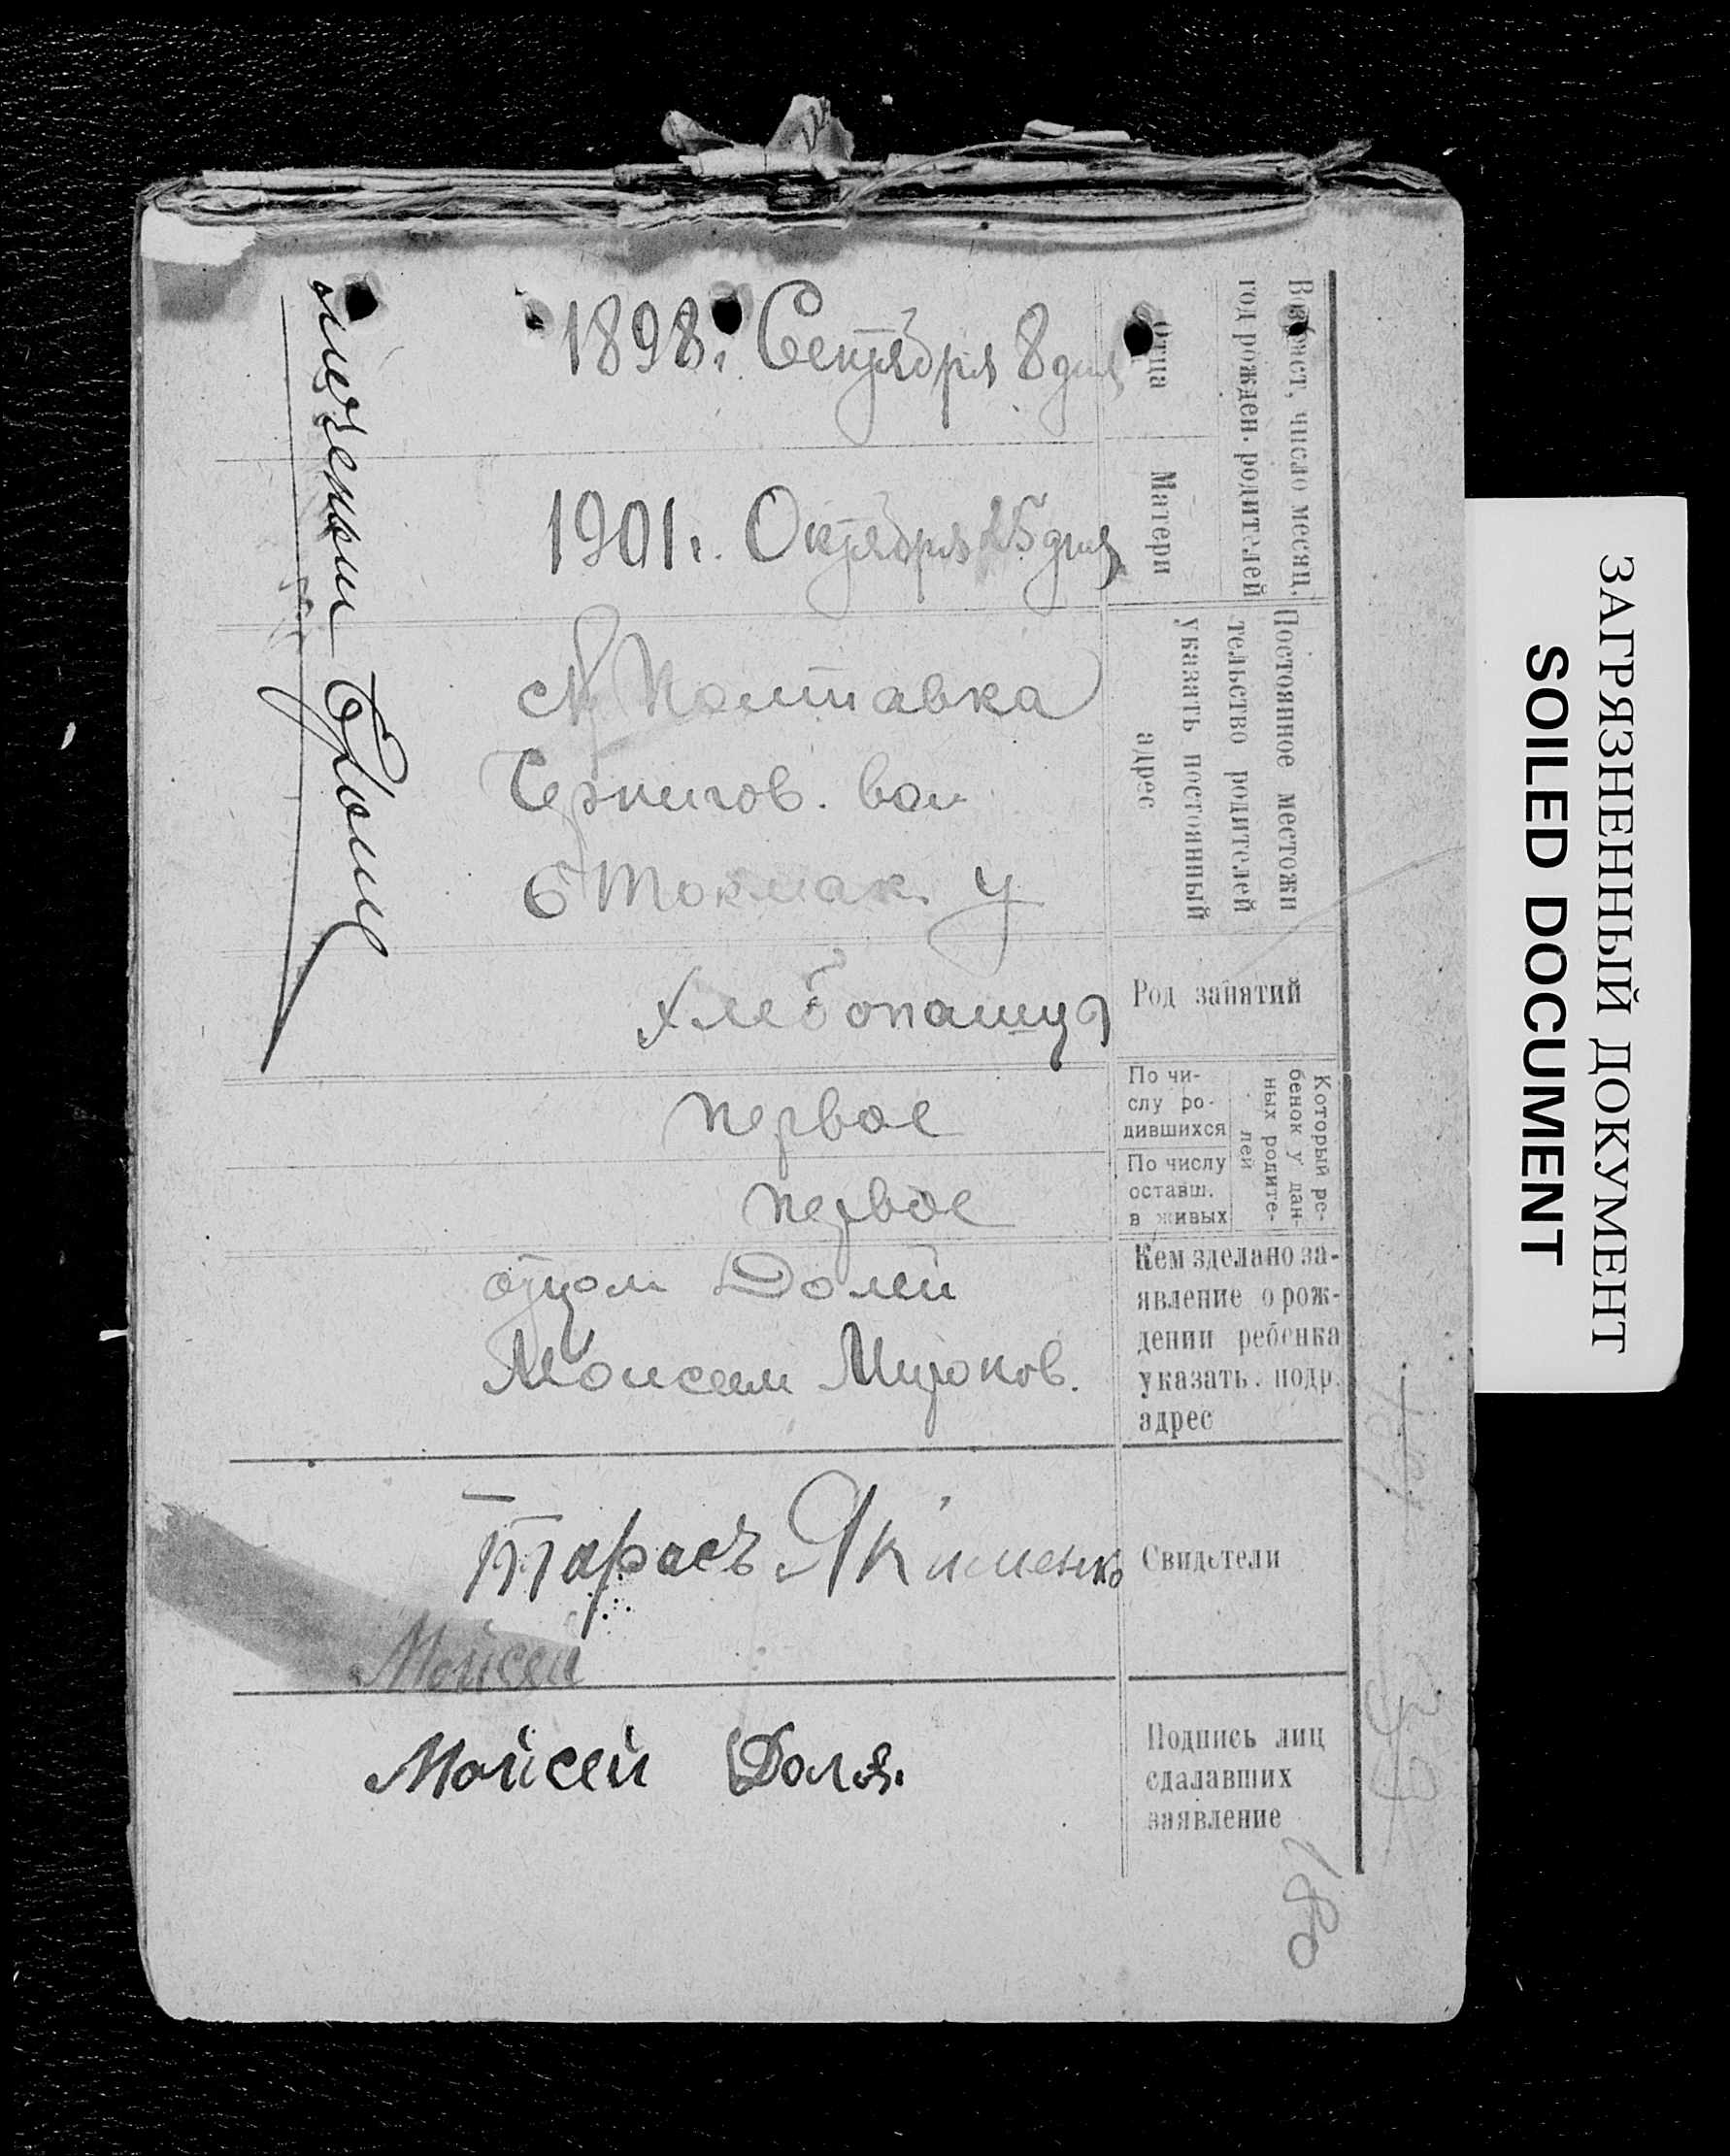 Возраст, число месяц,
год рожден. родителей
Отца
1898г. Сентября 8 дня
Матери
1901г. Октября 25 дня
Постоянное местожи
тельство родителей
указать постоянный
адрес
Полтавка
Чернигов. вол
Б Токмак. у
Род занятий
хлебопашец
Который ре-
бенок у дан-
ных родите-
лей
По чи-
слу ро-
дившихся
первое
По числу
оставш.
в живых
первое
Кем зделано за-
явление о рож-
дении ребенка
указать. подр.
адрес
отцом Долей
Моисеем Миронов.
Свидетели
Тарасъ Якименко
Мойсей
Подпись лиц
сдалавших
заявление
Мойсей Доля.
ЗАГРЯЗНЕННЫЙ ДОКУМЕНТ
SOILED DOCUMENT